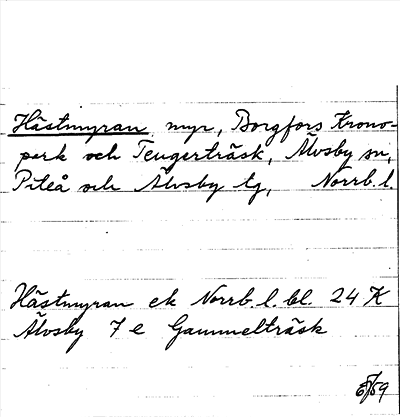 Hästmyran, myr, Borgfors Krono-
park och Teugerträsk, Älvsby sn,
Piteå och Älvsby tg, Norrb. l.
Hästmyran ek Norrb. l. bl. 24 K
Älvsby 7 e Gammelträsk